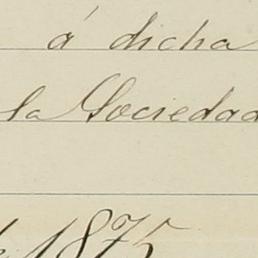 á dicha
la Sociedad
de 1875